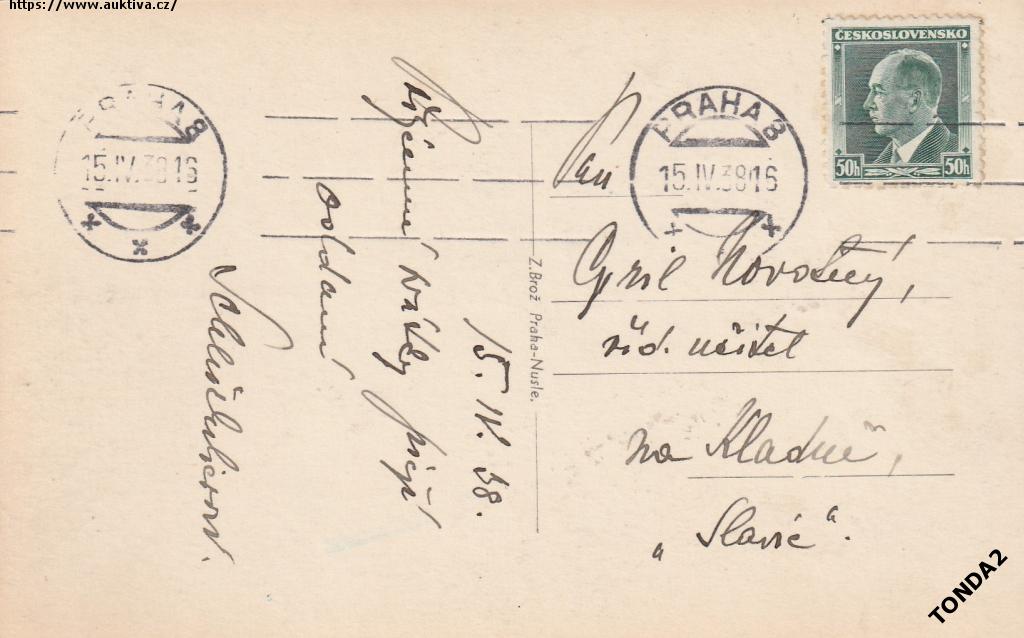 https://www.auktiva.cz/
PRAHA 8
15.IV.38 16
PRAHA 8
15.IV.38 16
ČESKOSLOVENSKO
50h 50h
15. IV. 38.
Příjemné svátky přejí
oddaní
Z. Brož Praha-Nusle.
Pan
Cyril Novotný,
říd. učitel
na Kladně,
"Slavíč".
TONDA2